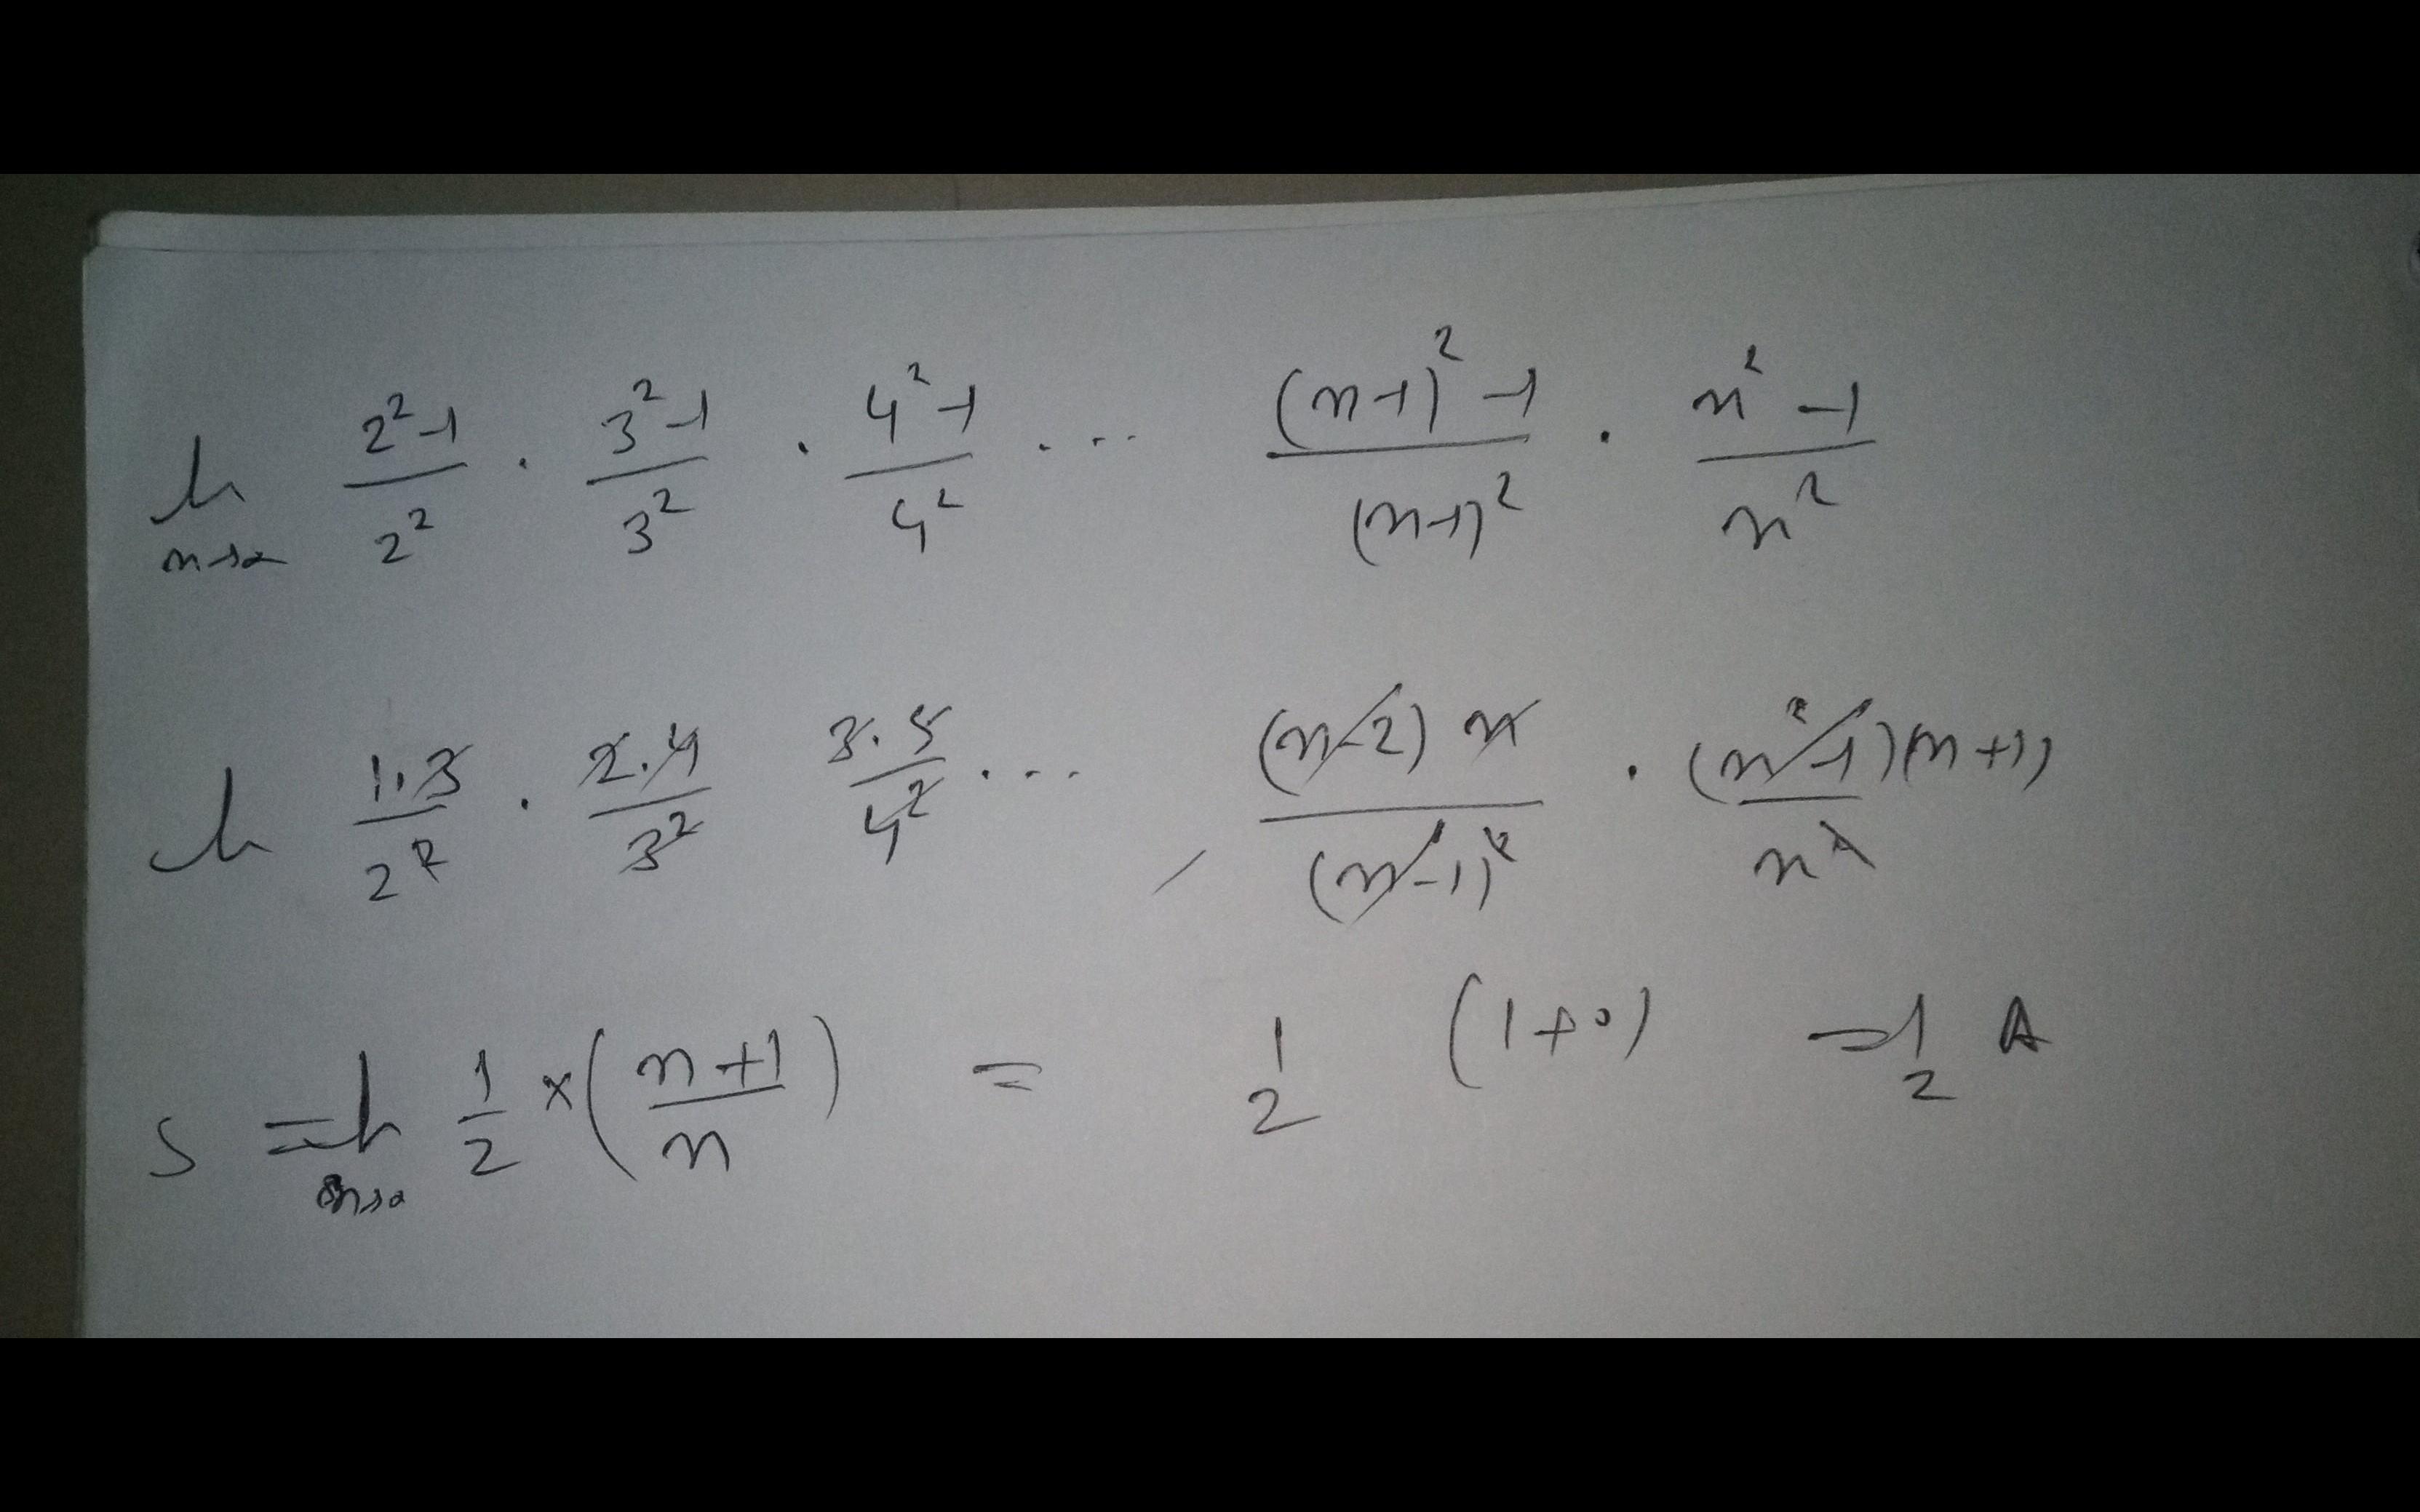 lim n→∞ (2²-1)/2² · (3²-1)/3² · (4²-1)/4² ... ((n-1)²-1)/(n-1)² · (n²-1)/n²
lim 1.3/2² · 2.4/3² 3.5/4² ... (n-2) n/(n-1)² · (n-1)(n+1)/n²
S = lim n→∞ 1/2 × ((n+1)/n) = 1/2 (1+0) = 1/2 A